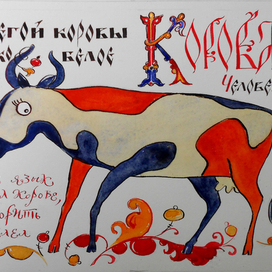 ЕГОЙ КОРОВЫ
КО БЕЛОЕ
КОРОВА
Челове
язык
корове,
ворить